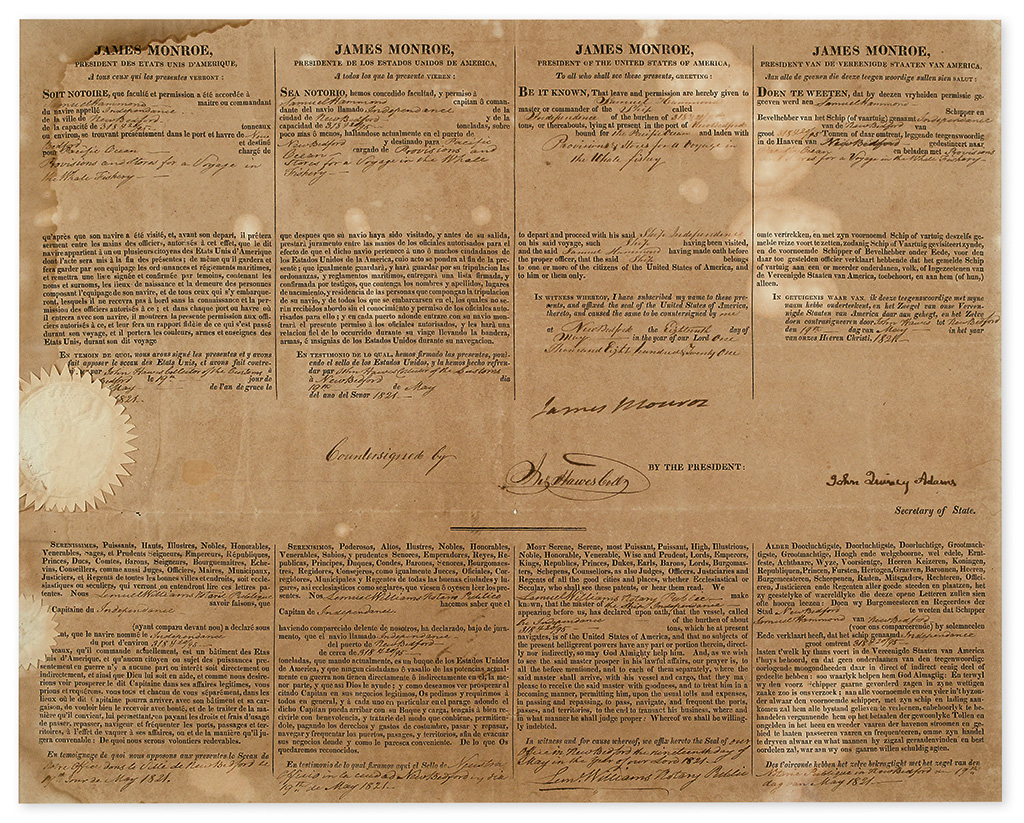 JAMES MONROE,
PRESIDENT DES ETATS UNIS D'AMERIQUE,
A tous ceux qui les presentes VERRONT :
SOIT NOTOIRE, que faculté et permission a été accordée à
Samuel Hammond maitre ou commandant
du navire appellé Independance
de la ville de New Bedford
de la capacité de 318 42/95 tonneaux
ou environ, se trouvant présentement dans le port et havre de New
Bedford et destiné
pour Pacific Ocean chargé de
Provisions and Stores for a Voyage in
the Whale Fishery
qu'après que son navire a été visité, et, avant son depart, il prêtera
serment entre les mains des officiers, autorisés à cet effet, que le dit
navire appartient à un ou plusieurs citoyens des Etats Unis d'Amérique
dont l'acte sera mis à la fin des présentes ; de même qu'il gardera et
fera garder par son equipage les ordonnances et réglemens maritimes,
et remettra une liste signée et confirmée par temoins, contenant les
noms et surnoms, les lieux de naissance et la demeure des personnes
composant l'equipage de son navire, et de tous ceux qui s'y embarque-
ront, lesquels il ne recevra pas à bord sans la connaissance et la per-
mission des officiers autorisés à ce ; et dans chaque port ou havre où
il entrera avec son navire, il montrera la presente permission aux offi-
ciers autorisés à ce, et leur fera un rapport fidèle de ce qui s'est passé
durant son voyage, et il portera les couleurs, armes et enseignes des
Etats Unis, durant son dit voyage
EN TEMOIN DE QUOI, nous avons signé les presentes et y avons
fait apposer le sceau des Etats Unis, et avons fait contre-
par John Hawes Collector of the Customs à
Bedford le 19th jour de
May de l'an de grace le
1821
JAMES MONROE,
PRESIDENTE DE LOS ESTADOS UNIDOS DE AMERICA,
A todos los que la presente VIEREN :
SEA NOTORIO, hemos concedido facultad, y permiso á
Samuel Hammond capitan ó coman-
dante del navio llamado Independance de la
ciudad de New Bedford y de la
capacidad de 318 42/95 toneladas, sobre
poco mas ó menos, hallandose actualmente en el puerto de
New Bedford y destinado para Pacific
Ocean cargado de Provisions and
Stores for a Voyage in the Whale
Fishery
que despues que su navio haya sido visitado, y antes de su salida,
prestará juramento entre las manos de los oficiales autorisados para el
efecto de que el dicho navio pertenece á uno ó muchos ciudanos de
los Estados Unidos de la America, cuio acto se pondra al fin de la pre-
sente ; que igualmente guardará, y hará guardar por su tripulacion las
ordonanzas, y reglamentos maritimos, entregará una lista firmada, y
confirmada por testigos, que contenga los nombres y apellidos, lugares
de nacimiento, y residencia de las personas que compongan la tripulacion
de su navio, y de todos los que se embarcasen en el, los quales no se-
rán recibidos abordo sin el conocimiento y permiso de los oficiales autori-
sados para ello ; y en cada puerto adonde entrare con su navio mon-
trará el presente permiso á los oficiales autorisados, y les hará una
relacion fiel de lo ocurrido durante su viage llevando la bandera,
armas, é insignias de los Estados Unidos durante su navegacion.
EN TESTIMONIO DE LO QUAL, hemos firmado las presentes, ponien-
do el sello de los Estados Unidos, y lo hemos hecho refren-
dar por John Hawes Collector of the Customs
á New Bedford dia
19th de May
del ano del Senor 1821
JAMES MONROE,
PRESIDENT OF THE UNITED STATES OF AMERICA,
To all who shall see these presents, GREETING :
BE IT KNOWN, That leave and permission are hereby given to
Samuel Hammond
master or commander of the Ship called
Independance of the burthen of 318 42/95
tons, or thereabouts, lying at present in the port of New Bedford
bound for the Pacific Ocean and laden with
Provisions & Stores for a Voyage in
the Whale fishery
to depart and proceed with his said Ship Independance
on his said voyage, such Ship having been visited,
and the said Samuel Hammond having made oath before
the proper officer, that the said Ship belongs
to one or more of the citizens of the United States of America, and
to him or them only.
IN WITNESS WHEREOF, I have subscribed my name to these pre-
sents, and affixed the seal of the United States of America,
thereto, and caused the same to be countersigned by me
at New Bedford the Eighteenth day of
May in the year of our Lord One
Thousand Eight hundred & Twenty One
JAMES MONROE,
PRESIDENT VAN DE VEREENIGDE STAATEN VAN AMERICA,
Aan alle de geenen die deeze tegen woordige sullen sien SALUT :
DOEN TE WEETEN, dat by deezen vryheiden permissie ge-
geeven werd aen Samuel Hammond
Schipper en
Bevelhebber van het Schip (of vaartuig) genaamt Independance
van de New Bedford van
groot 318 42/95 Tonnen of daar omtrent, leggende tegenswoordig
in de Haaven van New Bedford gedestineert naar
Pacific Ocean en beladen met Provisions
&s for a Voyage in the Whale Fishery
omte vertrekken, en met zyn voornoemd Schip of vartuig deszelfs ge-
melde reize voort te zetten, zodanig Schip of Vaartuig gevisiteert zynde,
en de voornoemde Schipper of Bevelhebber onder Eede, voor den
daar toe gestelden officier verklaart hebbende dat het gemelde Schip
of vartuig aan een or meerder onderdanen, volk, of Ingezeetenen van
de Vereenigde Staaten van America, toebehoort, en aan hem (of hun)
alleen.
IN GETUIGENIS WAAR VAN, ik deeze tegenswoordige met myne
naam hebbe onderteekend, en het Zeegel van onze Vereen-
nigde Staaten van America daar aan gehegt, en het Zelve
doen contrasigneeren door John Hawes te New Bedford
den 19th dag van May in het year
van onzes Heeren Christi, 1821
James Monroe
Countersigned by
Jno Hawes Collr
BY THE PRESIDENT:
John Quincy Adams
Secretary of State.
SERENISSIMES, Puissants, Hauts, Illustres, Nobles, Honorables,
Venerables, Sages, et Prudents Seigneurs, Empereurs, Républiques,
Princes, Ducs, Comtes, Barons, Seigneurs, Bourguemaitres, Eche-
vins, Conseillers, comme aussi Juges, Officiers, Maires, Municipaux,
Justiciers, et Regents de toutes les bonnes villes et endroits, soit eccle-
siastiques ou seculiers, qui verront ou entendront lire ces lettres pa-
tentes. Nous Lemuel Williams Notary Public
savoir faisons, que
Capitaine du Independance
(ayant comparu devant nou) a declaré sous
que le navire nommé le Independance
du port d'environ 318 42/95
tonneaux, qu'il commande actuellement, est un bâtiment des Etats
Unis d'Amérique, et qu'aucun citoyen ou sujet des puissances pre-
sentement en guerre n'y a aucune port ou interêt soit directement ou
indirectement, et ainsi que Dieu lui soit en aide, et comme nous desire-
rions voir prosperer le dit Capitaine dans ses affaires legitimes, vous
prions et requérons, vous tous et chacun de vous séparément, dans les
lieux où le dit Capitaine pourra arriver, avec son bâtiment et sa car-
gaison, de vouloir bien le recevoir avec bonté, et de le traiter de la ma-
nière qu'il convient, lui permettant, en payant les droits et frais d'usage
de passer, repasser, naviguer et frequenter les ports, passages, et ter-
ritoires, à l'effet de vaquer à ses affaires, ou et de la manière qu'il ju-
gera convenable : De quoi nous serons volontiers redevables.
En temoignage de quoi nous apposons aux presentes le Sceau de
Mon Office dans la Ville de New Bedford le
19th jour de May 1821.
SERENISIMOS, Poderosos, Altos, Ilustres, Nobles, Honorables,
Venerables, Sabios, y prudentes Senores, Emperadores, Reyes, Re-
publicas, Principes, Duques, Condes, Barones, Senores, Bourgomaes-
tres, Regidores, Consejeros, como igualmente Jueces, Oficiales, Cor-
regidores, Municipales y Regentes de todas las buenas ciudades y lu-
gares, asi eclesiasticos como seglares, que viesen ó oyesen leer las pre-
sentes: Nos Lemuel Williams Notary Public
hacemos saber que el
Capitan de Independance
haviendo comparecido delente de nosotros, ha declarado, bajo de jura-
mento, que el navio llamado Independance
del puerto de New Bedford
de cerca de 318 42/95
toneladas, que mando actualmente, es un buque de los Unidos de
America, y que ningun ciudadano ó vasallo de las potencias actual-
mente en guerra non tienen directamente ó indirectamente en el, la me-
nor parte, y que asi Dios le ayude ; y como deseamos ver prosperar al
citado Capitan en sus negocios legitimos, Os pedimos y requirimos á
todos en general, y á cada uno en particular en el parage donde el
dicho Capitan pueda arribar con su Buque y carga, tengais á bien re-
civirle con benevolencia, y tratarle del modo que conbiene, permitien-
dole, pagando los derechos y gastos de costumbre, pasar y repasar,
navegar y frequentar los puertos, pasages, y territorios, afin de evacuar
sus negocios donde y como le paresca conveniente. De lo que Os
quedaremos reconocidos.
En testimonio de lo qual firamos aqui el Sello de Nuestro
Oficio en la ciudad de New Bedford el dia
19th de May 1821
MOST Serene, Serene, most Puissant, Puissant, High, Illustrious,
Noble, Honorable, Venerable, Wise and Prudent, Lords, Emperors,
Kings, Republics, Princes, Dukes, Earls, Barons, Lords, Burgomas-
ters, Schepens, Counsellors, as also Judges, Officers, Justiciaries and
Regents of all the good cities and places, whether Ecclesiastical or
Secular, who shall see these patents, or hear them read. We
Lemuel Williams Notary Public make
known, that the master of the Ship Independance
appearing before us, has declared upon oath, that the vessel, called
the Independance of the burthen of about
318 42/95 tons, which he at present
navigates, is of the United States of America, and that no subjects of
the present belligerent powers have any part or portion therein, direct-
ly nor indirectly, so may God Almighty help him. And, as we wish
to see the said master prosper in his lawful affaires, our prayer is, to
all the before mentioned, and to each of them separately, where the
said master shall arrive, with his vessel and cargo, that they may
please to receive the said master with goodness, and to treat him in a
becoming manner, permitting him, upon the usual tolls and expenses
in passing and repassing, to pass, navigate, and frequent the ports,
passes, and territories, to the end to transact his business, where and
in what manner he shall judge proper : Whereof we shall be willing-
ly indebted.
In witness and for cause whereof, we affix hereto the Seal of our
Office in New Bedford the nineteenth day of
May in the year of our Lord 1821
Leml Williams Notary Public
ALDER Doorluchtigste, Doorluchtige, Doorluchtige, Grootmach-
tigste, Grootmachtige, Hoogh ende welgeboorne, wel edele, Ernt-
feste, Achtbaare, Wyze, Voorsientige, Heeren Keizeren, Koningen,
Republiquen, Princen, Forsten, Hertogen, Graeven, Baronnen, Heeren,
Burgemeesteren, Scheepenen, Raden, Mitsgaders, Rechteren, Offi-
cieren, Justicieren ende Regenten aller goede steden en plaetzen, het
zy geestelyke of waereldlyke die deeze opene Letteren zullen sien
ofte hooren leezen : Doen wy Burgemeesteren en Regeerders der
Stad New Bedford te weeten dat Schipper
Samuel Hammond van New Bedford
(voor ons compareerende) by solemneelen
Eede verklaart heeft, dat het schip genaamd Independance
groot omtrent 318 42/95
lasten t'welk hy thans voert in de Vereenigde Staaten van America
t'huys behoord, en dat geen onderdaanen van den tegenswoordige
oorlogende moogendheden daar in direct of indirect eenig deel of
gedeelte hebben : soo waarlyk helpen hem God Almagtig. En terwyl
wy den voorgemelden schipper gaarne gevorderd zagen in zyne wettigen
zaake zoo is ons verzoek : aan alle voornoemde en een yder in't byzon-
der alwaar den voornoemde schipper, met zyn schip en lading aan-
komen zal hem alle bystand gelieven te verleenen, ende hem te be-
handelen vergunnende hem op het betaalen der gewoonlyke Tollen en
Ongelden in het heen en weeder vaaren der havenen stroomen en ge-
bied te laaten passeeren vaaren en frequenteeren, omme zyn handel
te dryven alwaar en in wat manier hy zigzal geraden vinden en best
oordelen zal, waar aen wy ons gaarne willen schuldig agten.
Des t'oirconde hebben het zelve bekragtigt met het zegel van den
Notaris Publique in New Bedford en 19th
dag van May 1821